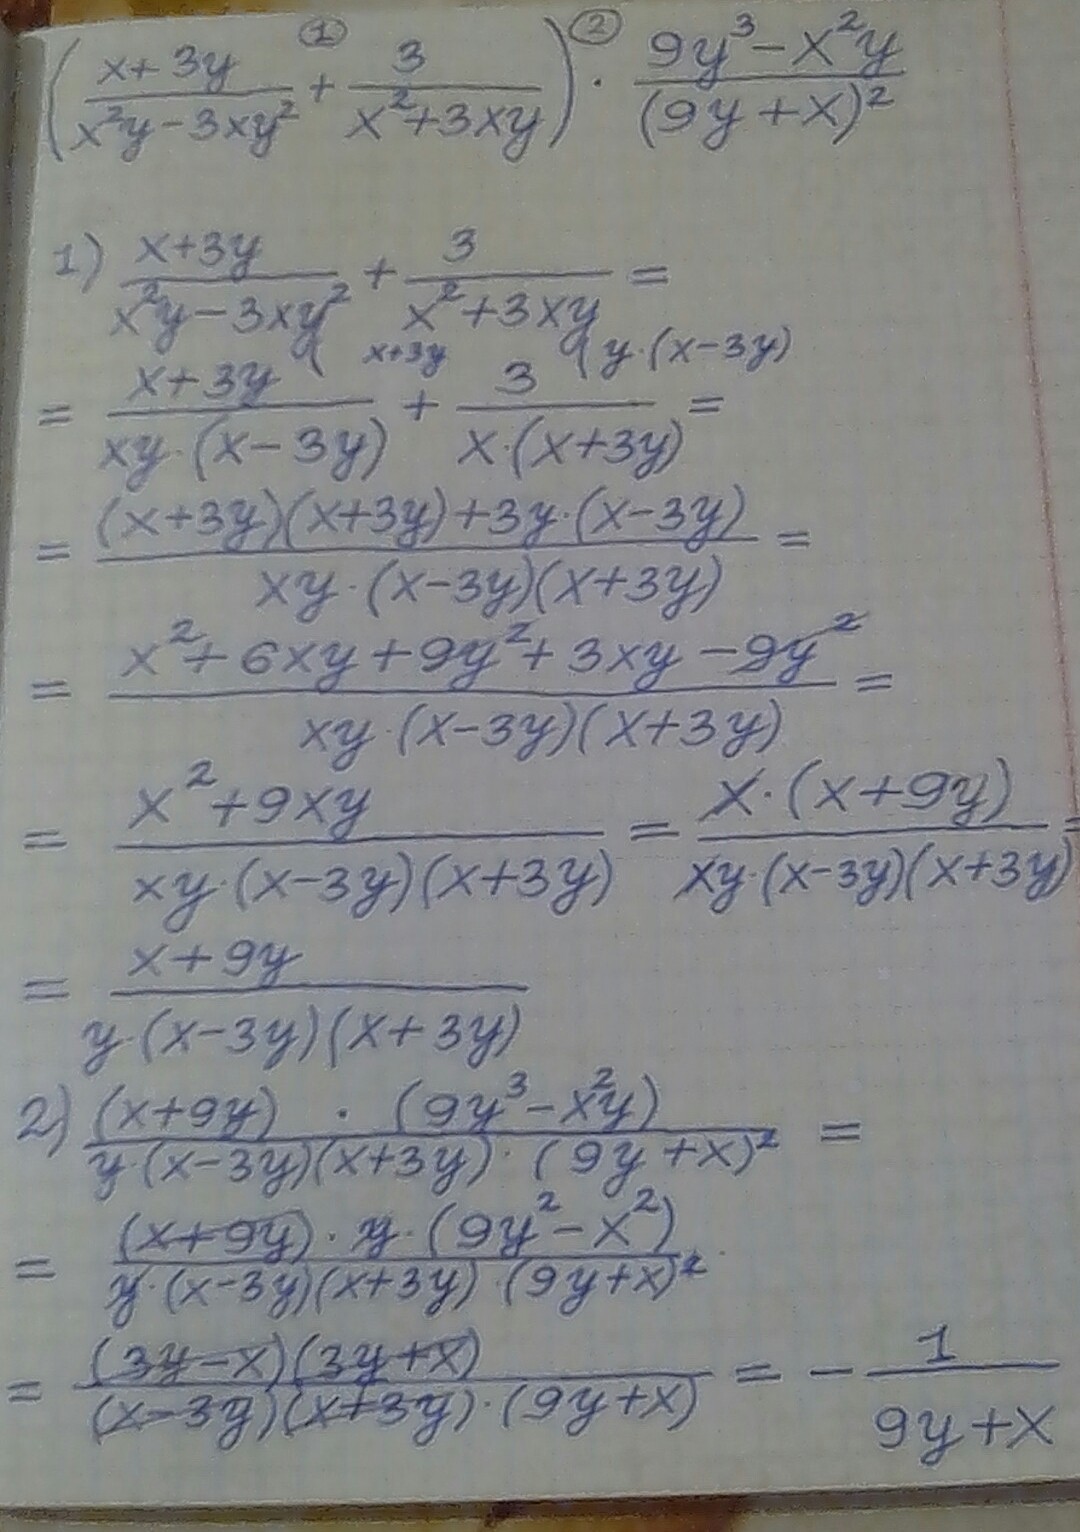 ① ②
( (x+3y)/(x²y−3xy²) + 3/(x²+3xy) ) · (9y³−x²y)/(9y+x)²
1) (x+3y)/(x²y−3xy²) + 3/(x²+3xy) =
x+3y y·(x−3y)
= (x+3y)/(xy·(x−3y)) + 3/(x·(x+3y)) =
= ((x+3y)(x+3y)+3y·(x−3y))/(xy·(x−3y)(x+3y)) =
= (x²+6xy+9y²+3xy−9y²)/(xy·(x−3y)(x+3y)) =
= (x²+9xy)/(xy·(x−3y)(x+3y)) = (x·(x+9y))/(xy·(x−3y)(x+3y)) =
= (x+9y)/(y·(x−3y)(x+3y))
2) ((x+9y) · (9y³−x²y))/(y·(x−3y)(x+3y)·(9y+x)²) =
= ((x+9y)·y·(9y²−x²))/(y·(x−3y)(x+3y)·(9y+x)²)
= ((3y−x)(3y+x))/((x−3y)(x+3y)·(9y+x)) = − 1/(9y+x)